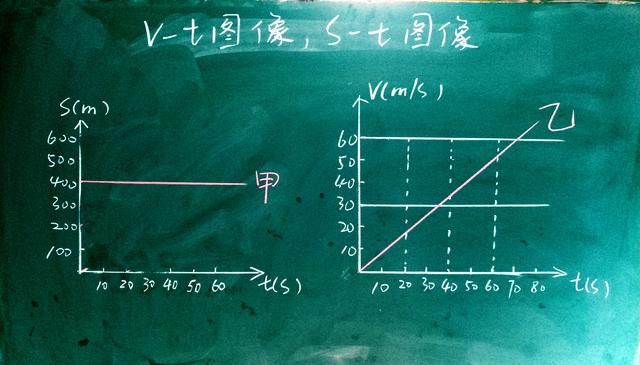 V-t图像,S-t图像
S(m)
600
500
400
300
200
100
甲
10 20 30 40 50 60
t(s)
V(m/s)
乙
60
50
40
30
20
10
10 20 30 40 50 60 70 80
t(s)